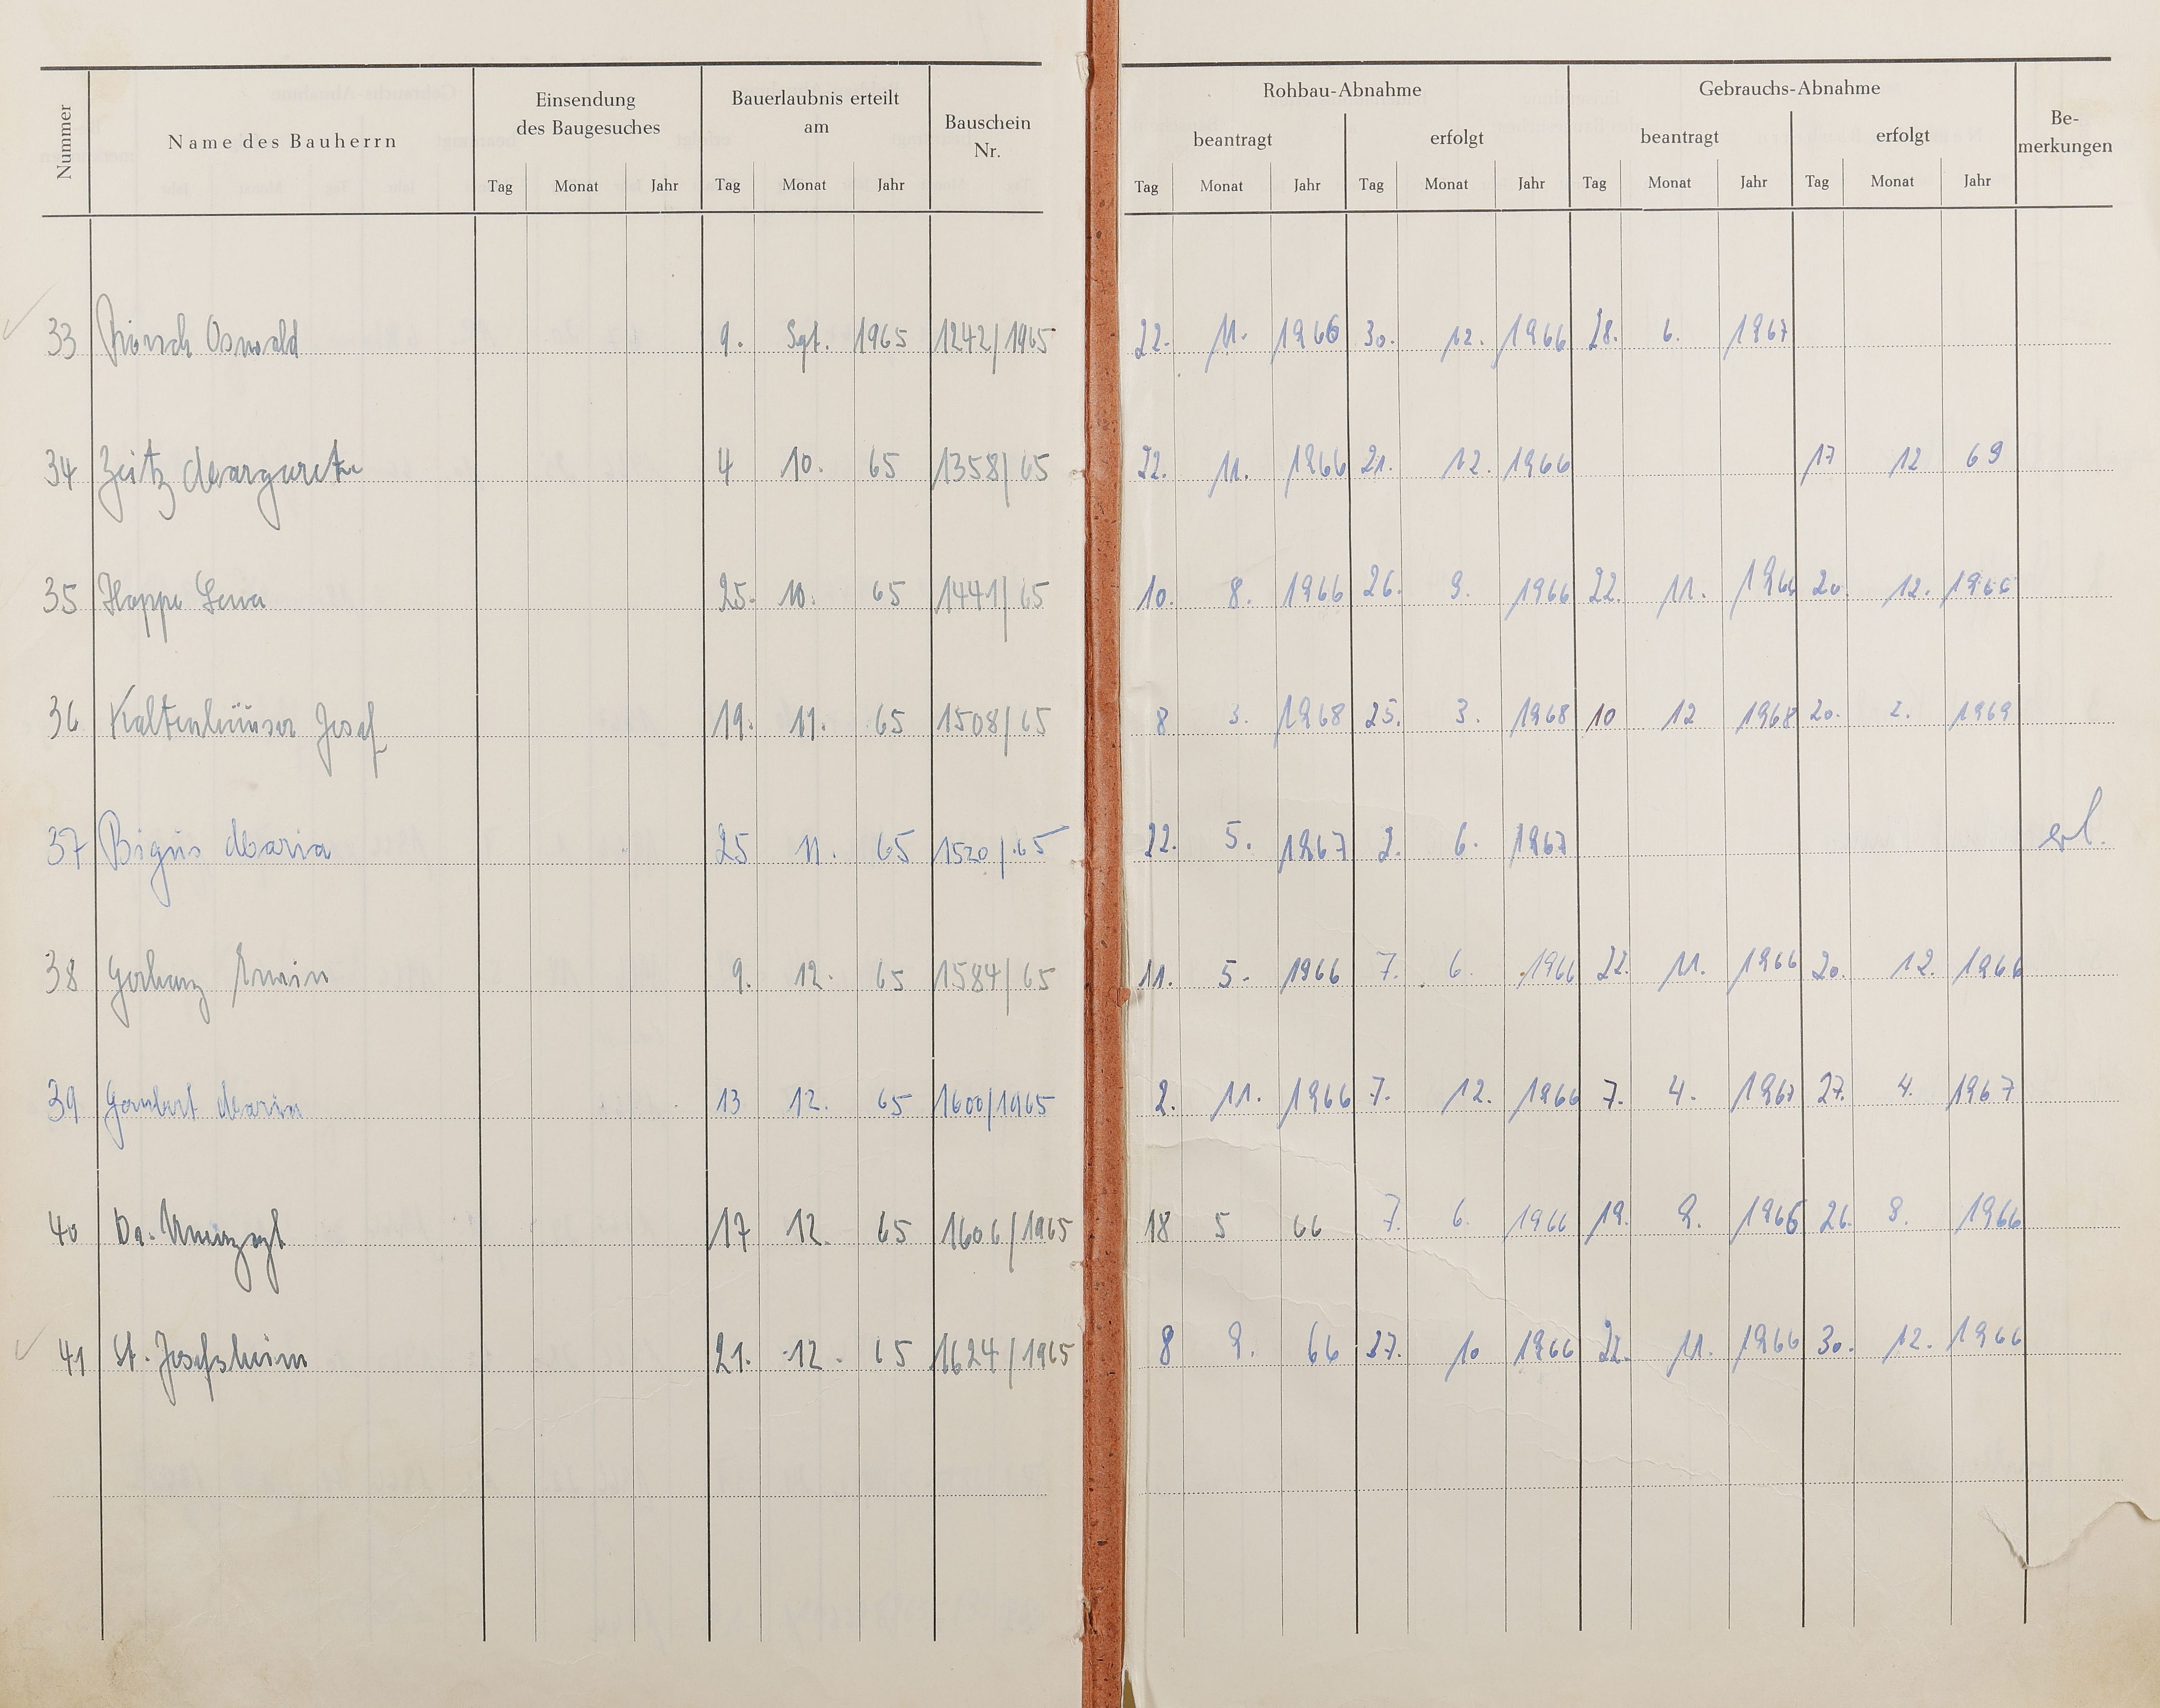 Nummer Name des Bauherrn Einsendung des Baugesuches Bauerlaubnis erteilt am Bauschein Nr. Rohbau-Abnahme Gebrauchs-Abnahme Be-merkungen
beantragt erfolgt beantragt erfolgt
Tag Monat Jahr Tag Monat Jahr Tag Monat Jahr Tag Monat Jahr Tag Monat Jahr Tag Monat Jahr
33 Oswald 9. Spt. 1965 1242/1965 22. 11. 1966 30. 12. 1966 28. 6. 1967
34 Zeitz Margarete 4 10. 65 1358/65 22. 11. 1966 21. 12. 1966 17 12 69
35 Hoppe Lena 25. 10. 65 1441/65 10. 8. 1966 26. 9. 1966 22. 11. 1966 20. 12. 1966
36 Kaltenhäuser Josef 19. 11. 65 1508/65 8 3. 1968 25. 3. 1968 10 12 1968 20. 2. 1969
37 Bignis Maria 25 11. 65 1520/65 22. 5. 1967 2. 6. 1967 erl.
38 Gerharz Erwin 9. 12. 65 1584/65 11. 5. 1966 7. 6. 1966 22. 11. 1966 20. 12. 1966
39 Gombert Maria 13 12. 65 1600/1965 2. 11. 1966 7. 12. 1966 7. 4. 1967 27. 4. 1967
40 Dr. 17 12. 65 1606/1965 18 5 66 7. 6. 1966 19. 9. 1966 26. 9. 1966
41 St. Josefsheim 21. 12. 65 1624/1965 8 9. 66 27. 10 1966 22. 11. 1966 30. 12. 1966